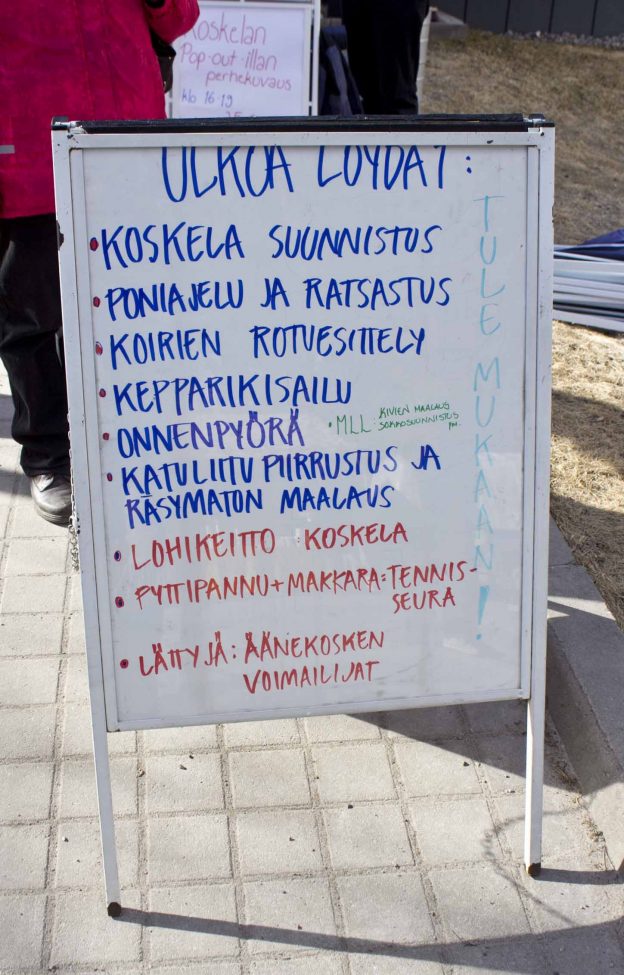 Koskelan
Pop-out-illan
perhekuvaus
klo 16-19
ULKOA LÖYDÄT:
• KOSKELA SUUNNISTUS
• PONIAJELU JA RATSASTUS
• KOIRIEN ROTUESITTELY
• KEPPARIKISAILU
• ONNENPYÖRÄ
• MLL: KIVIEN MAALAUS
SOKKOSUUNNISTUS
• KATULIITU PIIRRUSTUS JA
RÄSYMATON MAALAUS
• LOHIKEITTO : KOSKELA
• PYTTIPANNU + MAKKARA = TENNIS-
SEURA
• LÄTTYJÄ : ÄÄNEKOSKEN
VOIMAILIJAT
TULE MUKAAN!